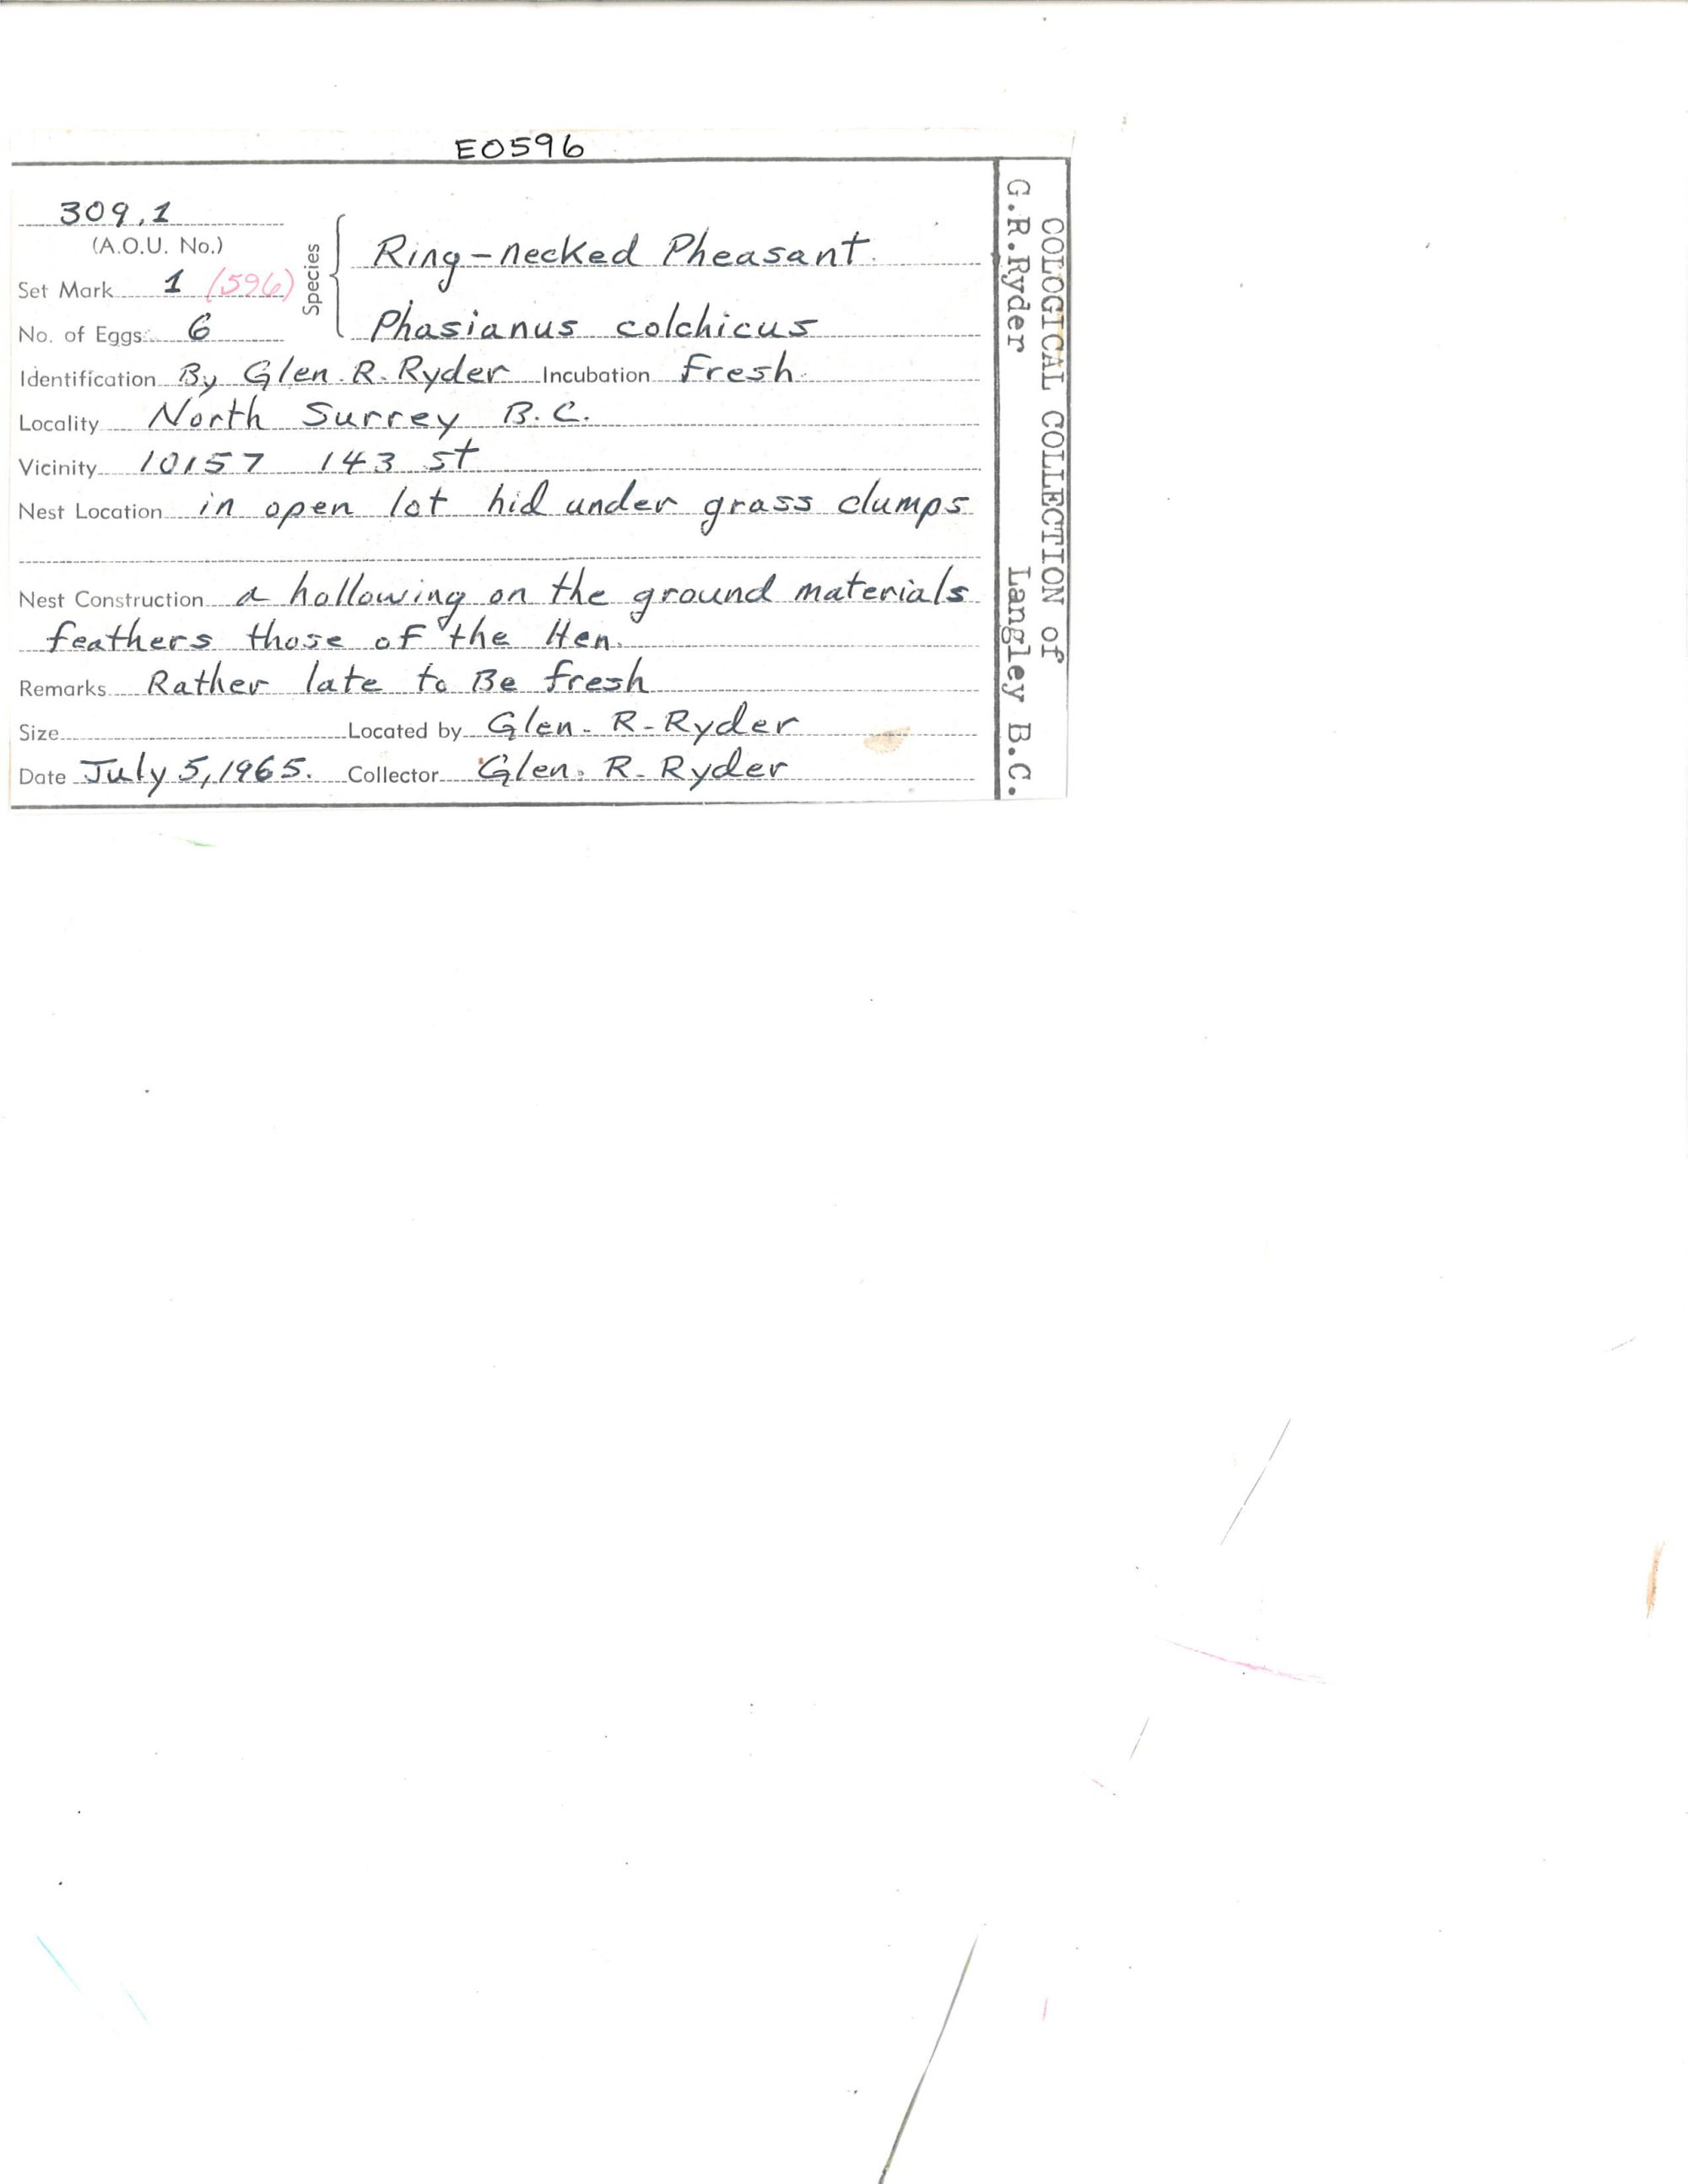 E0596
309.1
(A.O.U. No.)
Set Mark 1 (596)
No. of Eggs 6
Species
Ring-necked Pheasant
Phasianus colchicus
Identification By Glen. R. Ryder Incubation Fresh
Locality North Surrey B.C.
Vicinity 10157 143 st
Nest Location in open lot hid under grass clumps
Nest Construction a hollowing on the ground materials
feathers those of the Hen.
Remarks Rather late to Be fresh
Size Located by Glen. R-Ryder
Date July 5, 1965. Collector Glen. R-Ryder
OOLOGICAL COLLECTION of
G.R.Ryder Langley B.C.